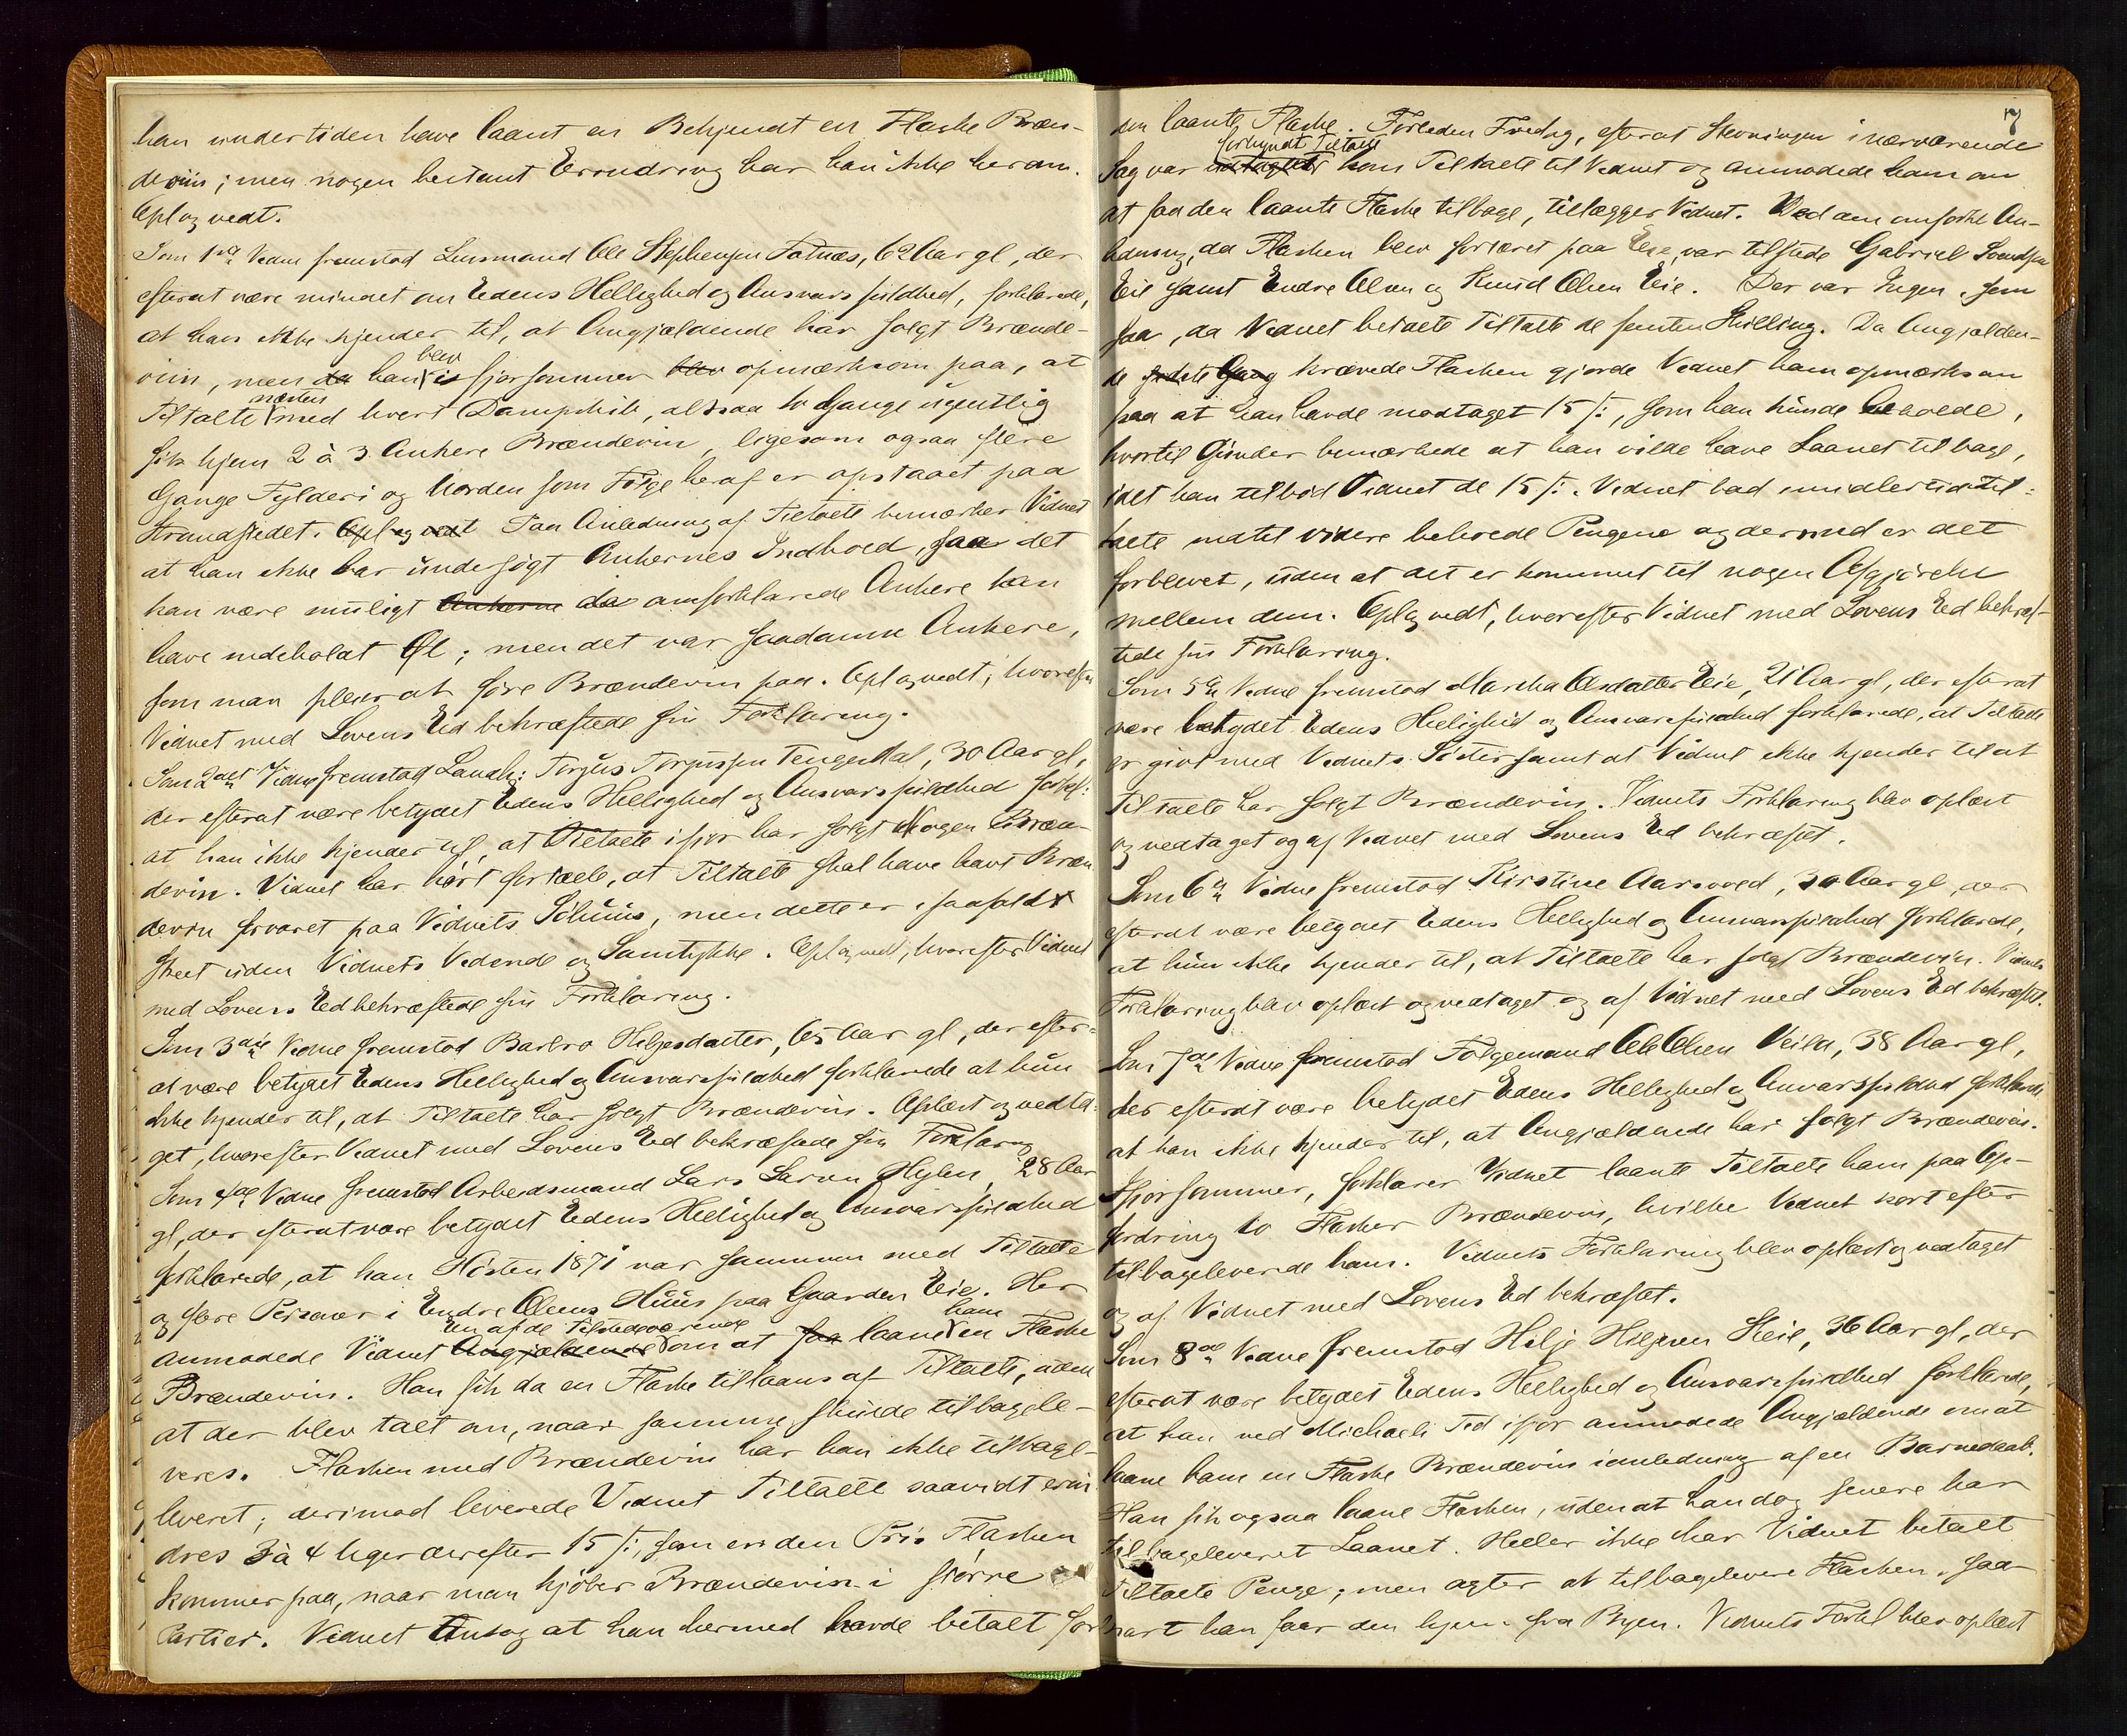 han undertiden have laant en Bekjendt en Flaske Bræn-
deviin; men nogen bestemt Erindring har han ikke herom.
Opl og vedt.
Som 1ste Vidne fremstod Lensmand Ole Stephensen Fotnæs, 62 Aar gl, der
efterat være mindet om Edens Hellighed og Ansvarsfuldhed, forklarede,
at han ikke kjender til, at Angjældende har solgt Brænde-
viin, men da han blev i fjorsommer blev opmærksom paa, at
Tiltalte næsten med hvert Dampskib, altsaa to Gange ugentlig
fik hjem 2 à 3 Ankere Brændevin, ligesom ogsaa flere
Gange Fylderi og Uorden som Følge heraf er opstaaet paa
Strandstedet. Opl og vedt Paa Anledning af Tiltalte bemærker Vidnet
at han ikke har undersøgt Ankernes Indhold, saa det
kan være muligt Ankerne da omforklarede Ankere kan
have indeholdt Øl; men det var saadanne Ankere,
som man pleier at føre Brændevin paa. Opl og vedt; hvorefter
Vidnet med Lovens Ed bekræftede sin Forklaring.
Som 2det Vidne fremstod Landh: Torgus Torgussen Tengesdal, 30 Aar gl,
der efterat være betydet Edens Hellighed og Ansvarsfuldhed forkl:
at han ikke kjender til, at Tiltalte ifjor har solgt Nogen Bræn-
devin. Vidnet har hørt fortælle, at Tiltalte skal have havt Bræn-
devin forvaret paa Vidnets Søhuus, men dette er isaafald
skeet uden Vidnets Vidende og Samtykke. Opl og vedt, hvorefter Vidnet
med Lovens Ed bekræftede sin Forklaring.
Som 3die Vidne fremstod Barbro Heljesdatter, 65 Aar gl, der efter-
at være betydet Edens Hellighed og Ansvarsfuldhed forklarede at hun
ikke kjender til, at Tiltalte har solgt Brændevin. Oplæst og vedta-
get, hvorefter Vidnet med Lovens Ed bekræftede sin Forklaring
Som 4de Vidne fremstod Arbeidsmand Lars Larsen Hylen, 28 Aar
gl, der efterat være betydet Edens Hellighed og Ansvarsfuldhed
forklarede, at han Høsten 1871 var sammen med Tiltalte
og flere Personer i Endre Olsens Huus paa Gaarden Eie. Her
anmodede Vidnet Angjældende en af de Tilstedeværende om at faa laane ham en Flaske
Brændevin. Han fik da en Flaske tillaans af Tiltalte, uden
at der blev talt om, naar samme skulde tilbagele-
veres. Flasken med Brændevin har han ikke tilbage-
leveret; derimod leverede Vidnet Tiltalte saavidt erin-
dres 3 à 4 Uger derefter 15 s:, som er den Pris Flasken
kommer paa, naar man kjøber Brændevin i større
Partier. Vidnet Antog at han hermed havde betalt for
7
den laante Flaske. Forleden Fredag, efterat Stevningen i nærværende
Sag var modtaget forkyndt Tiltalte kom Tiltalte til Vidnet og anmodede ham om
at faa den laante Flaske tilbage, tillægger Vidnet. Ved den omforkl An-
ledning, da Flasken blev fortæret paa Eie, var tilstede Gabriel Svendsen
Eie samt Endre Olsen og Knud Olsen Eie. Der var Ingen, som
saa, da Vidnet betalte Tiltalte de femten Skilling. Da Angjælden-
de sidste Gang krævede Flasken gjorde Vidnet ham opmærksom
paa at han havde modtaget 15 s:, som han kunde beholde,
hvortil Gunder bemærkede at han vilde have Laanet tilbage,
idet han tilbød Vidnet de 15 s:. Vidnet bad imidlertid Til-
talte indtil videre beholde Pengene og dermed er det
forblevet, uden at det er kommet til nogen Afgjørelse
mellem dem. Opl og vedt, hvorefter Vidnet med Lovens Ed bekræf-
tede sin Forklaring.
Som 5te Vidne fremstod Martha Olsdatter Eie, 21 Aar gl, der efterat
være betydet Edens Hellighed og Ansvarsfuldhed forklarede, at Tiltalte
er givt med Vidnets Søster samt at Vidnet ikke kjender til at
Tiltalte har solgt Brændevin. Vidnets Forklaring blev oplæst
og vedtaget og af Vidnet med Lovens Ed bekræftet.
Som 6te Vidne fremstod Kirstine Aarsvold, 30 Aar gl, der
efterat være betydet Edens Hellighed og Ansvarsfuldhed forklarede,
at hun ikke kjender til, at Tiltalte har solgt Brændevin. Vidnets
Forklaring blev oplæst og vedtaget og af Vidnet med Lovens Ed bekræftet.
Som 7de Vidne fremstod Følgemand Ole Olsen Veila, 38 Aar gl,
der efterat være betydet Edens Hellighed og Ansvarsfuldhed forklarede
at han ikke kjender til, at Angjældende har solgt Brændevin.
Ifjorsommer, forklarer Vidnet laante Tiltalte ham paa Op-
fordring to Flasker Brændevin, hvilke Vidnet kort efter
tilbageleverede ham. Vidnets Forklaring blev oplæst og vedtaget
og af Vidnet med Lovens Ed bekræftet.
Som 8de Vidne fremstod Helje Heljesen Eie, 36 Aar gl, der
efterat være betydet Edens Hellighed og Ansvarsfuldhed forklarede,
at han ved Michaeli Tid ifjor anmodede Angjældende om at
laane ham en Flaske Brændevin i anledning af en Barnedaab.
Han fik ogsaa laane Flasken, uden at han dog senere har
tilbageleveret Laanet. Heller ikke har Vidnet betalt
Tiltalte Penge; men agter at tilbagelevere Flasken, saa-
snart han faar den hjem fra Byen. Vidnets Forkl blev oplæst